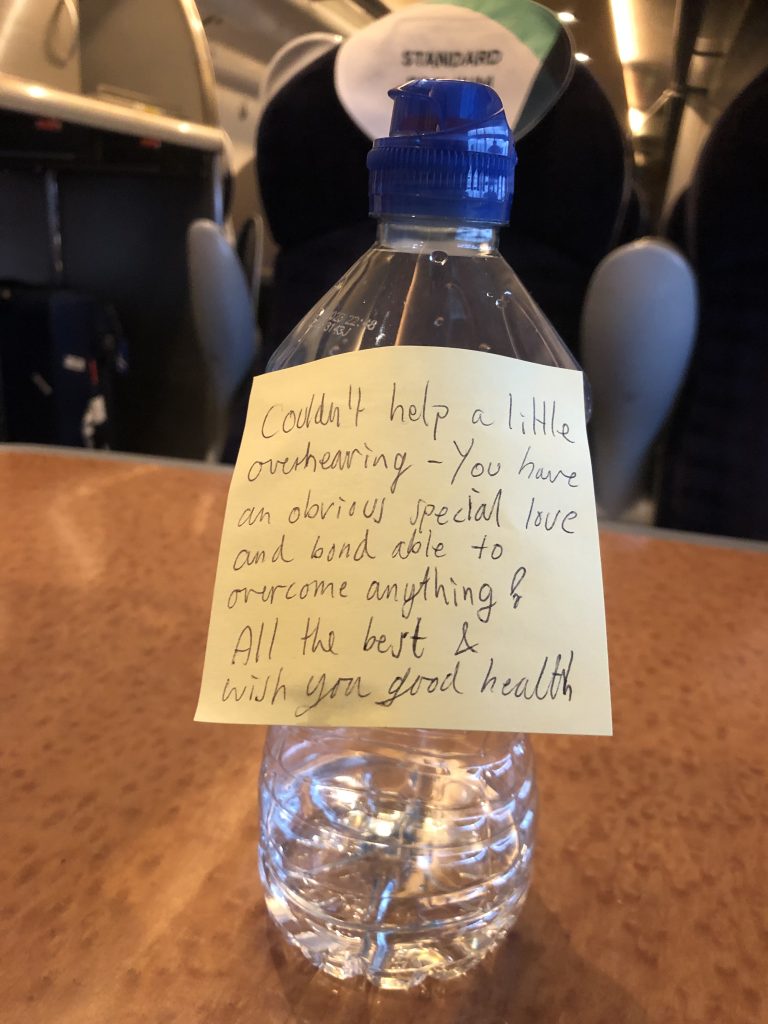 STANDARD
Couldn't help a little
overhearing - You have
an obvious special love
and bond able to
overcome anything!
All the best &
wish you good health